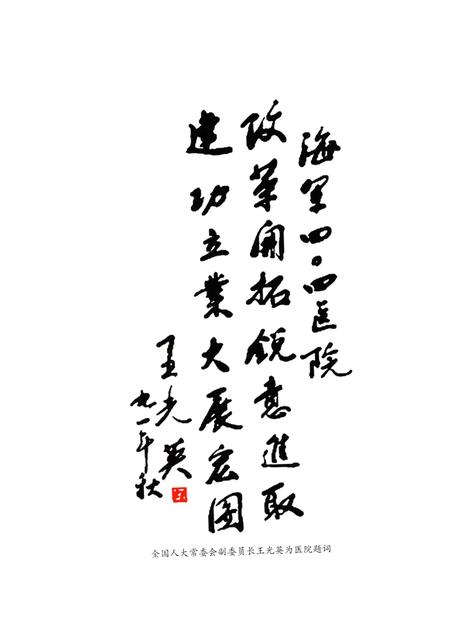 海军四〇四医院
改革开拓锐意進取
建功立業大展宏图
王光英
九一年秋
全国人大常委会副委员长王光英为医院题词